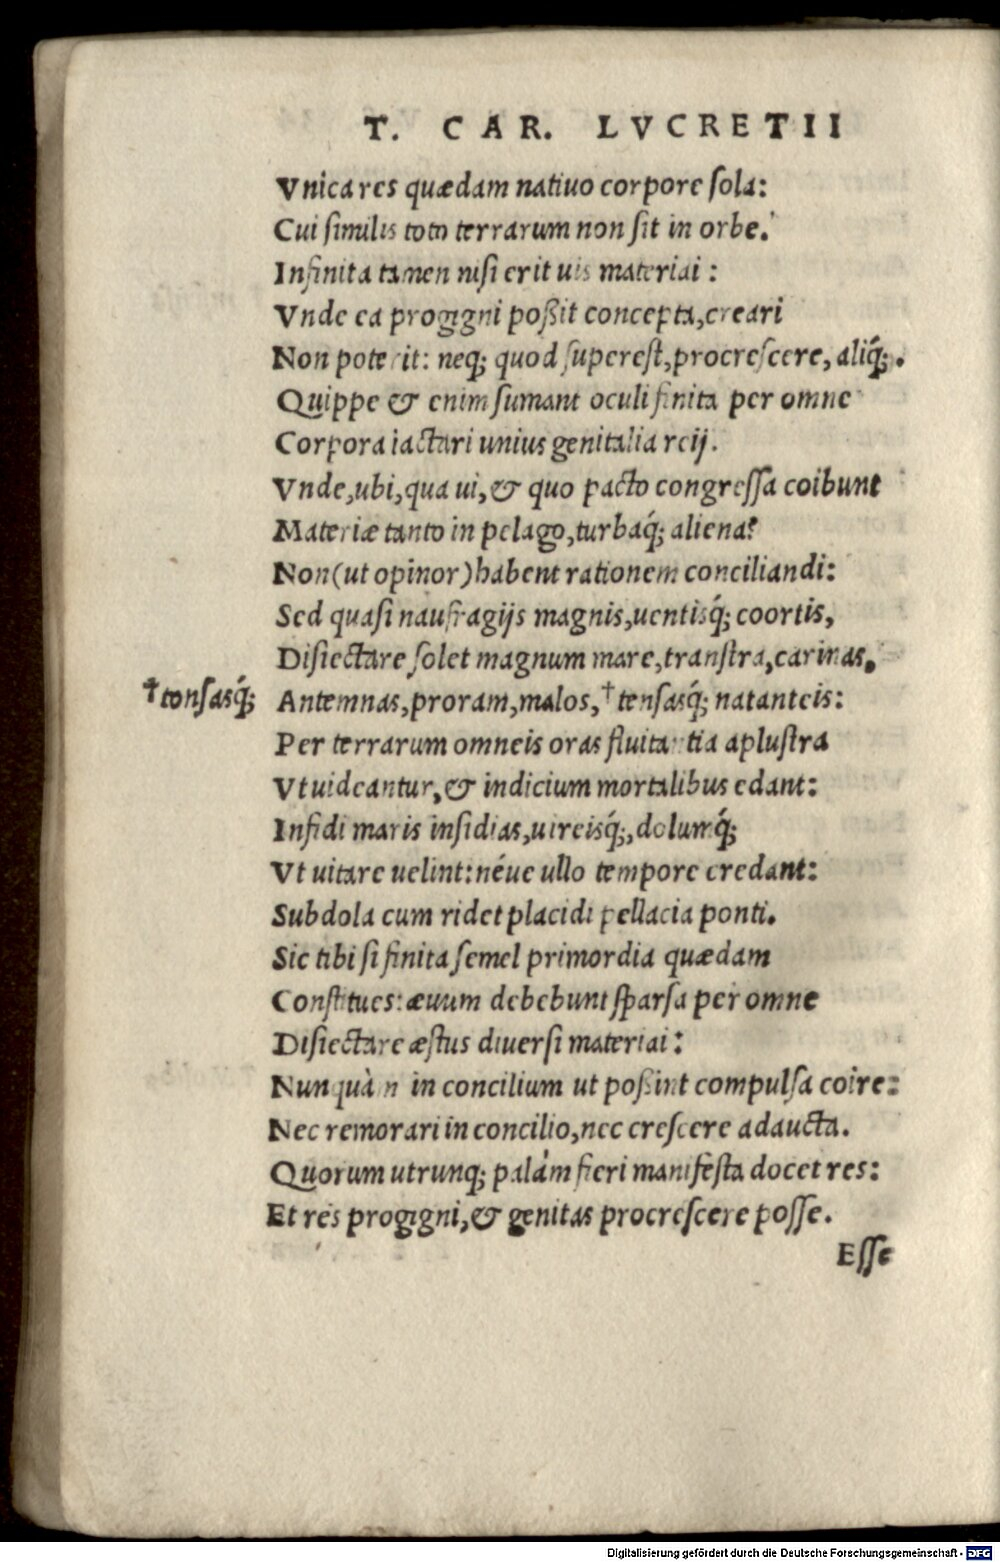 T. CAR. LVCRETII
Vnica res quædam natiuo corpore ſola:
Cui ſimilis toto terrarum non ſit in orbe.
Infinita tamen niſi erit uis materiai:
Vnde ea progigni poßit concepta, creari
Non poterit: neq; quod ſupereſt, procreſcere, aliq́;.
Quippe & enim ſumant oculi finita per omne
Corpora iactari unius genitalia reij.
Vnde, ubi, qua ui, & quo pacto congreſſa coibunt
Materiæ tanto in pelago, turbaq́; aliena?
Non (ut opinor) habent rationem conciliandi:
Sed quaſi naufragijs magnis, uentisq́; coortis,
Diſiectare ſolet magnum mare, tranſtra, carinas,
†tonſasq́; Antemnas, proram, malos, †tenſasq́; natanteis:
Per terrarum omneis oras fluitantia apluſtra
Vt uideantur, & indicium mortalibus edant:
Infidi maris inſidias, uireisq́;, dolumq́;
Vt uitare uelint: néue ullo tempore credant:
Subdola cum ridet placidi pellacia ponti.
Sic tibi ſi finita ſemel primordia quædam
Conſtitues: æuum debebunt ſparſa per omne
Diſiectare æſtus diuerſi materiai:
Nunquàm in concilium ut poßint compulſa coire:
Nec remorari in concilio, nec creſcere adaucta.
Quorum utrunq; palám fieri manifeſta docet res:
Et res progigni, & genitas procreſcere poſſe.
Eſſe
Digitalisierung gefördert durch die Deutsche Forschungsgemeinschaft - DFG